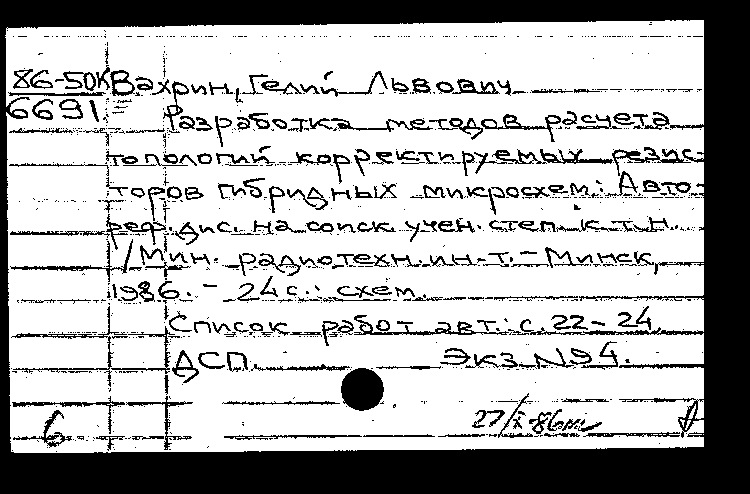 86-50К Вахрин, Гелий Львович
6691. Разработка методов расчета
топологий корректируемых резис-
торов гибридных микросхем: Авто-
реф. дис. на соиск. учен. степ. к.т.н.
/Мин. радиотехн. ин-т. - Минск,
1986. - 24 с.: схем.
Список работ авт.: с. 22-24.
ДСП. Экз N94.
6 27/X-86